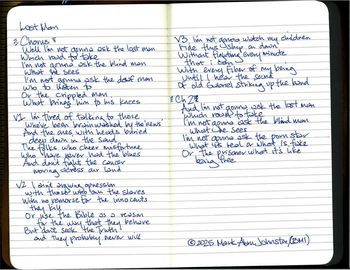 Lost Man
Chorus
Well I'm not gonna ask the lost man
Which road to take
I'm not gonna ask the blind man
What he sees
I'm not gonna ask the deaf man
who to listen to
Or the crippled man
What brings him to his knees
V1. I'm tired of talking to those
Who've been brain washed by the "news"
And the ones with heads buried
deep down in the sand
The folks who cheer misfortune
Who have never had the blues
And don't fight the cancer
moving across our land
V2. I ain't buying
with those who own the slaves
With no remorse for the innocents
they kill
Or use the Bible as a reason
for the way that they behave
But don't seek the truth
and they probably never will
V3. I'm not gonna watch my children
ride this ship on down
Without fighting every minute
that I can
With every fiber of my being
Until I hear the sound
Of old Gabriel striking up the band
Ch 2
And I'm not gonna ask the lost man
Which road to take
I'm not gonna ask the blind man
what he sees
I'm not gonna ask the porn star
What it's real or what is fake
Or The prisoner what it's like
being free
©2025 Mark Ann Johnston (BMI)